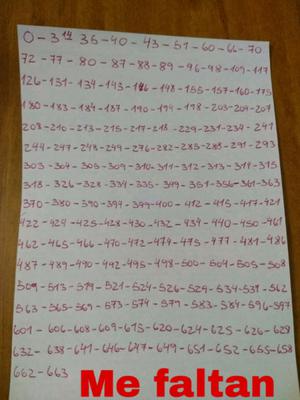 0-3 14 35-40-43-51-60-66-70
72-77-80-87-88-89-96-98-109-117
126-131-134-143-146-148-155-157-160-175
180-183-184-187-190-194-198-203-204-207
208-210-213-215-217-218-229-231-234-241
244-247-248-249-276-282-283-288-291-293
303-304-305-309-310-311-312-313-314-315
318-326-328-334-335-349-351-356-361-363
370-380-390-394-399-400-412-415-417-421
422-424-425-428-430-432-434-440-450-461
462-465-466-470-472-474-475-477-481-486
487-489-490-492-495-498-500-504-505-508
509-513-519-521-524-526-529-534-531-562
563-565-569-573-574-579-583-584-596-597
601-606-608-609-615-620-624-625-626-628
632-638-641-646-647-649-651-652-655-658
662-663
Me faltan